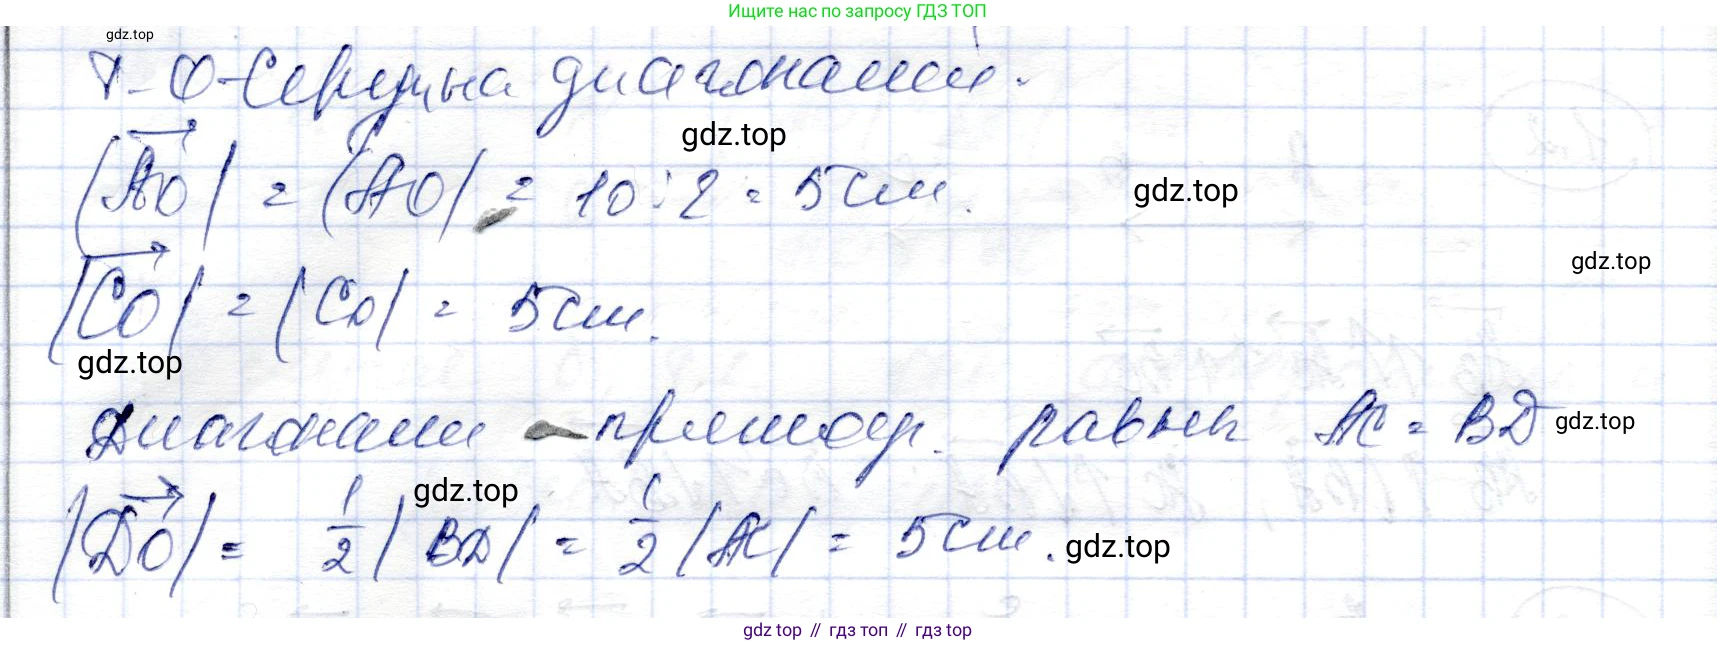 Ищите нас по запросу ГДЗ ТОП
gdz.top
т - О - середина диагоналей.
gdz.top
|AO| = |AO| = 10 : 2 = 5 см.
gdz.top
gdz.top
|CO| = |CO| = 5 см.
gdz.top
Диагонали - прямоуг. равны AC = BD
gdz.top
gdz.top
|DO| = 1/2 |BD| = 1/2 |AC| = 5 см.
gdz.top
gdz top // гдз топ // гдз top